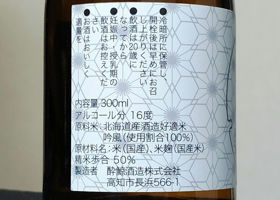 冷暗所に保管し、
開栓後は早めにお召
し上がりください。
飲酒は20歳に
なってから。
妊娠中や授乳期の
飲酒はお控え
ください。
お酒は
適量を。
内容量 300ml
アルコール分 16度
原料米:北海道産酒造好適米
吟風(使用割合100%)
原材料:米(国産)、米麹(国産)
精米歩合 50%
製造者 酔鯨酒造株式会社
高知市長浜566-1